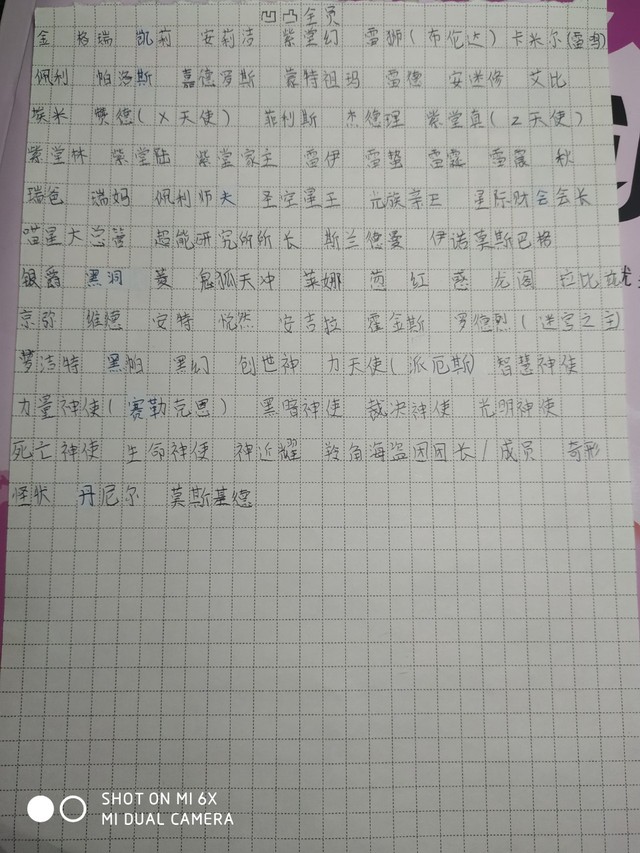 凹凸全员
金 格瑞 凯莉 安莉洁 紫堂幻 雷狮(布伦达) 卡米尔(雷鸣)
佩利 帕洛斯 嘉德罗斯 蒙特祖玛 雷德 安迷修 艾比
埃米 赞德(X天使) 菲利斯 杰德理 紫堂真(Z天使)
紫堂林 紫堂陆 紫堂家主 雷伊 雷蛰 雷霆 雷震 秋
瑞爸 瑞妈 佩利师夫 圣空星王 元族亲王 星际财会会长
喵星大总管 超能研究所所长 斯兰德曼 伊诺莫斯巴格
银爵 黑洞 菱 鬼狐天冲 莱娜 茜 红 慈 龙阎 拉比
京弥 维德 安特 悦然 安吉拉 霍金斯 罗德烈(迷宫之主)
萝洁特 黑帕 黑幻 创世神 力天使(派厄斯) 智慧神使
力量神使(赛勒克思) 黑暗神使 裁决神使 光明神使
死亡神使 生命神使 神近耀 羚角海盗团团长/成员 奇形
怪状 丹尼尔 莫斯基德
SHOT ON MI 6X
MI DUAL CAMERA